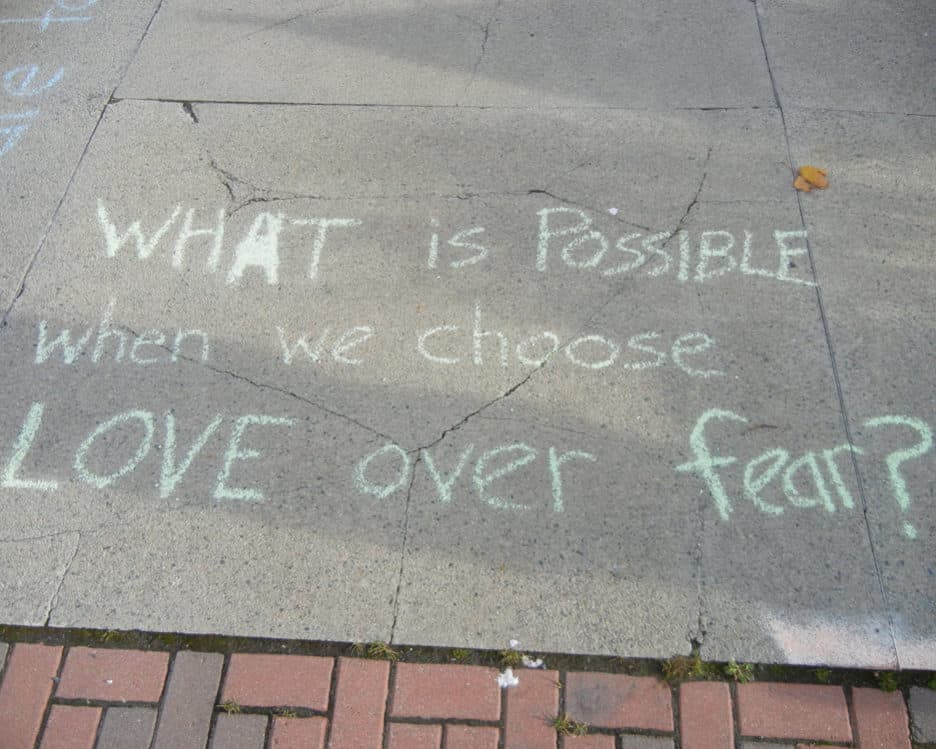 WHAT is PossIBLE
when we choose
LOVE over fear?